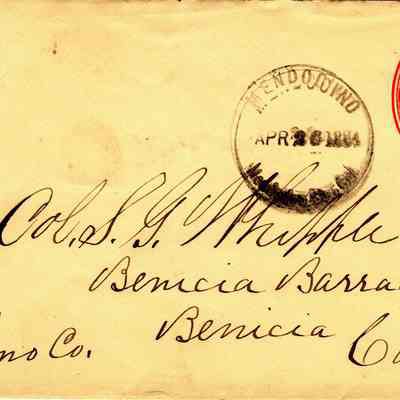 MENDOCINO
APR 26 1884
Col. S. G. Whipple
Benicia Barra
Benicia
no Co. Ca